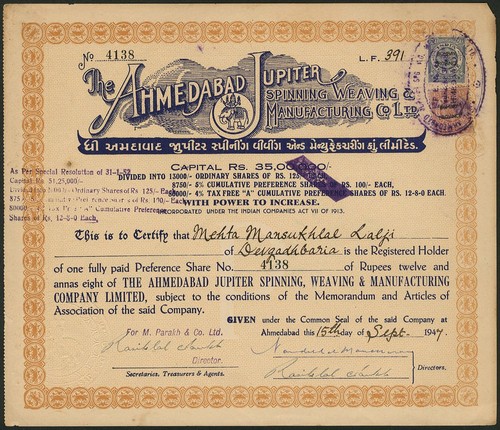 No 4138
L. F. 391
The AHMEDABAD JUPITER
SPINNING WEAVING &
MANUFACTURING CO LTD.
ધી અમદાવાદ જુપીટર સ્પીનીંગ વીવીંગ એન્ડ મેન્યુફેકચરીંગ કું. લીમીટેડ.
CAPITAL RS. 35,00,000/-
DIVIDED INTO 13000/- ORDINARY SHARES OF RS. 125/-
8750/- 5% CUMULATIVE PREFERENCE SHARES OF RS. 100/- EACH,
4% TAX FREE "A" CUMULATIVE PREFERENCE SHARES OF RS. 12-8-0 EACH.
WITH POWER TO INCREASE.
INCORPORATED UNDER THE INDIAN COMPANIES ACT VII OF 1913.
As Per Special Resolution of 31-1-52
Capital Rs. 51,25,000/-
Divided Ordinary Shares of Rs. 125/- Each
875 Preference Shares of Rs. 100/- Each,
Tax Free "A" Cumulative Preference
Shares of Rs. 12-8-0 Each.
This is to Certify that Mehta Mansukhlal Lalji
of Devgadhbaria is the Registered Holder
of one fully paid Preference Share No. 4138 of Rupees twelve and
annas eight of THE AHMEDABAD JUPITER SPINNING, WEAVING & MANUFACTURING
COMPANY LIMITED, subject to the conditions of the Memorandum and Articles of
Association of the said Company.
GIVEN under the Common Seal of the said Company at
Ahmedabad this 15th day of Sept. 1947.
For M. Parakh & Co. Ltd.
Director.
Secretaries, Treasurers & Agents.
Directors.